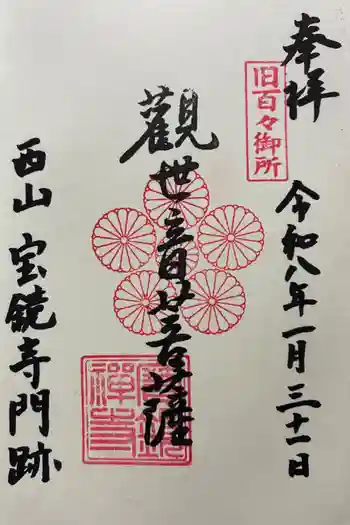 奉拝
旧百々御所
令和八年一月三十一日
觀世音菩薩
寳鏡禅寺
西山 宝鏡寺門跡